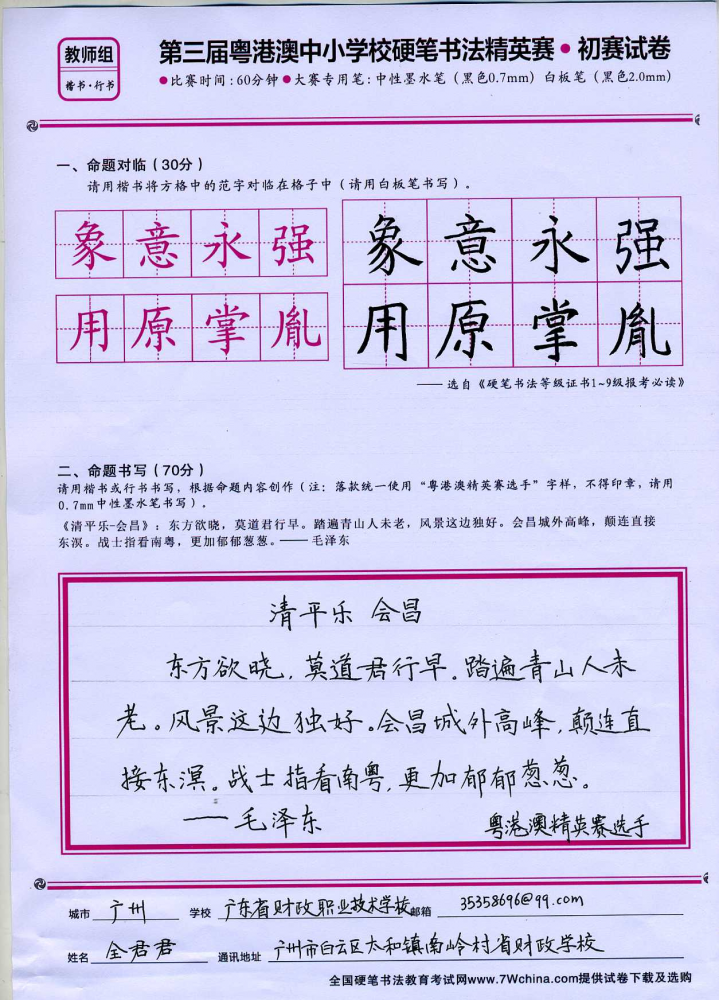 教师组
楷书·行书
第三届粤港澳中小学校硬笔书法精英赛·初赛试卷
●比赛时间:60分钟●大赛专用笔:中性墨水笔(黑色0.7mm) 白板笔(黑色2.0mm)
一、命题对临(30分)
请用楷书将方格中的范字对临在格子中(请用白板笔书写)。
象意永强
用原掌胤
象意永强
用原掌胤
——选自《硬笔书法等级证书1~9级报考必读》
二、命题书写(70分)
请用楷书或行书书写,根据命题内容创作(注:落款统一使用“粤港澳精英赛选手”字样,不得印章,请用
0.7mm中性墨水笔书写)。
《清平乐-会昌》:东方欲晓,莫道君行早。踏遍青山人未老,风景这边独好。会昌城外高峰,颠连直接
东溟。战士指看南粤,更加郁郁葱葱。——毛泽东
清平乐 会昌
东方欲晓,莫道君行早。踏遍青山人未
老。风景这边独好。会昌城外高峰,颠连直
接东溟。战士指看南粤,更加郁郁葱葱。
——毛泽东 粤港澳精英赛选手
城市 广州 学校 广东省财政职业技术学校 邮箱 35358696@qq.com
姓名 全君君 通讯地址 广州市白云区太和镇南岭村省财政学校
全国硬笔书法教育考试网www.7Wchina.com提供试卷下载及选购